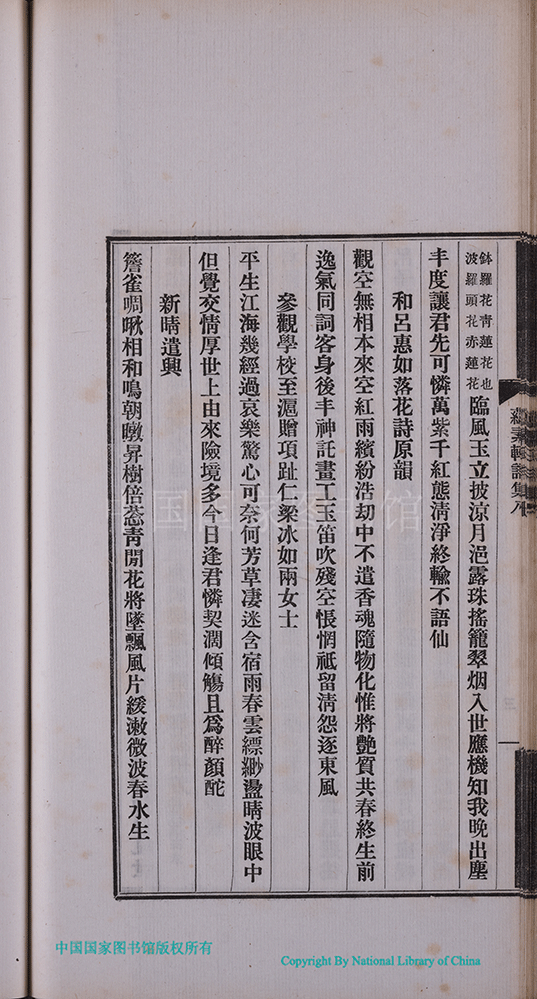 鉢羅花青蓮花也
波羅頭花赤蓮花
臨風玉立披涼月浥露珠搖籠翠烟入世應機知我晚出塵
丰度讓君先可憐萬紫千紅態清淨終輸不語仙
和呂惠如落花詩原韻
觀空無相本來空紅雨繽紛浩劫中不遣香魂隨物化惟將艷質共春終生前
逸氣同詞客身後丰神託畫工玉笛吹殘空悵惘祗留清怨逐東風
參觀學校至滬贈項趾仁梁冰如兩女士
平生江海幾經過哀樂驚心可奈何芳草凄迷含宿雨春雲縹緲盪晴波眼中
但覺交情厚世上由來險境多今日逢君憐契濶傾觴且爲醉顏酡
新晴遣興
簷雀啁啾相和鳴朝暾昇樹倍葱青閒花將墜飄風片緩漱微波春水生
中国国家图书馆版权所有
Copyright By National Library of China